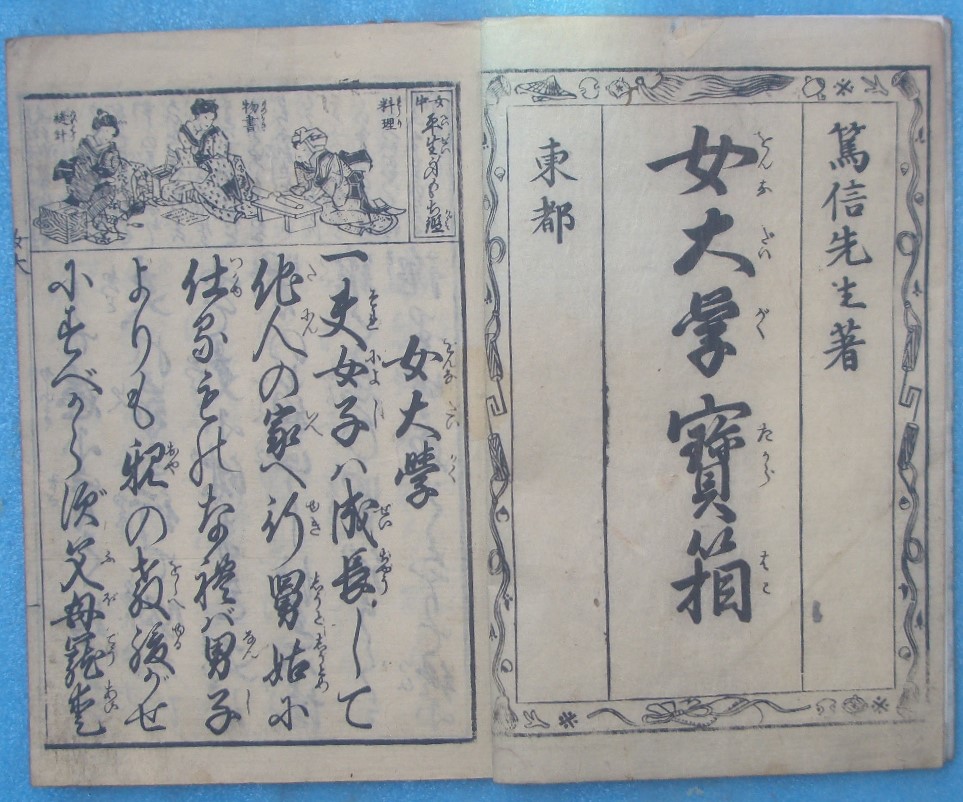 篤信先生著
女大学寶箱
をんな だい がく たから ばこ
東都
料理
物書
女大學
一夫女子ハ成長して
他人の家へ行舅姑に
仕るものなれバ男子
よりも親の教緩がせ
にすべからず父母寵愛